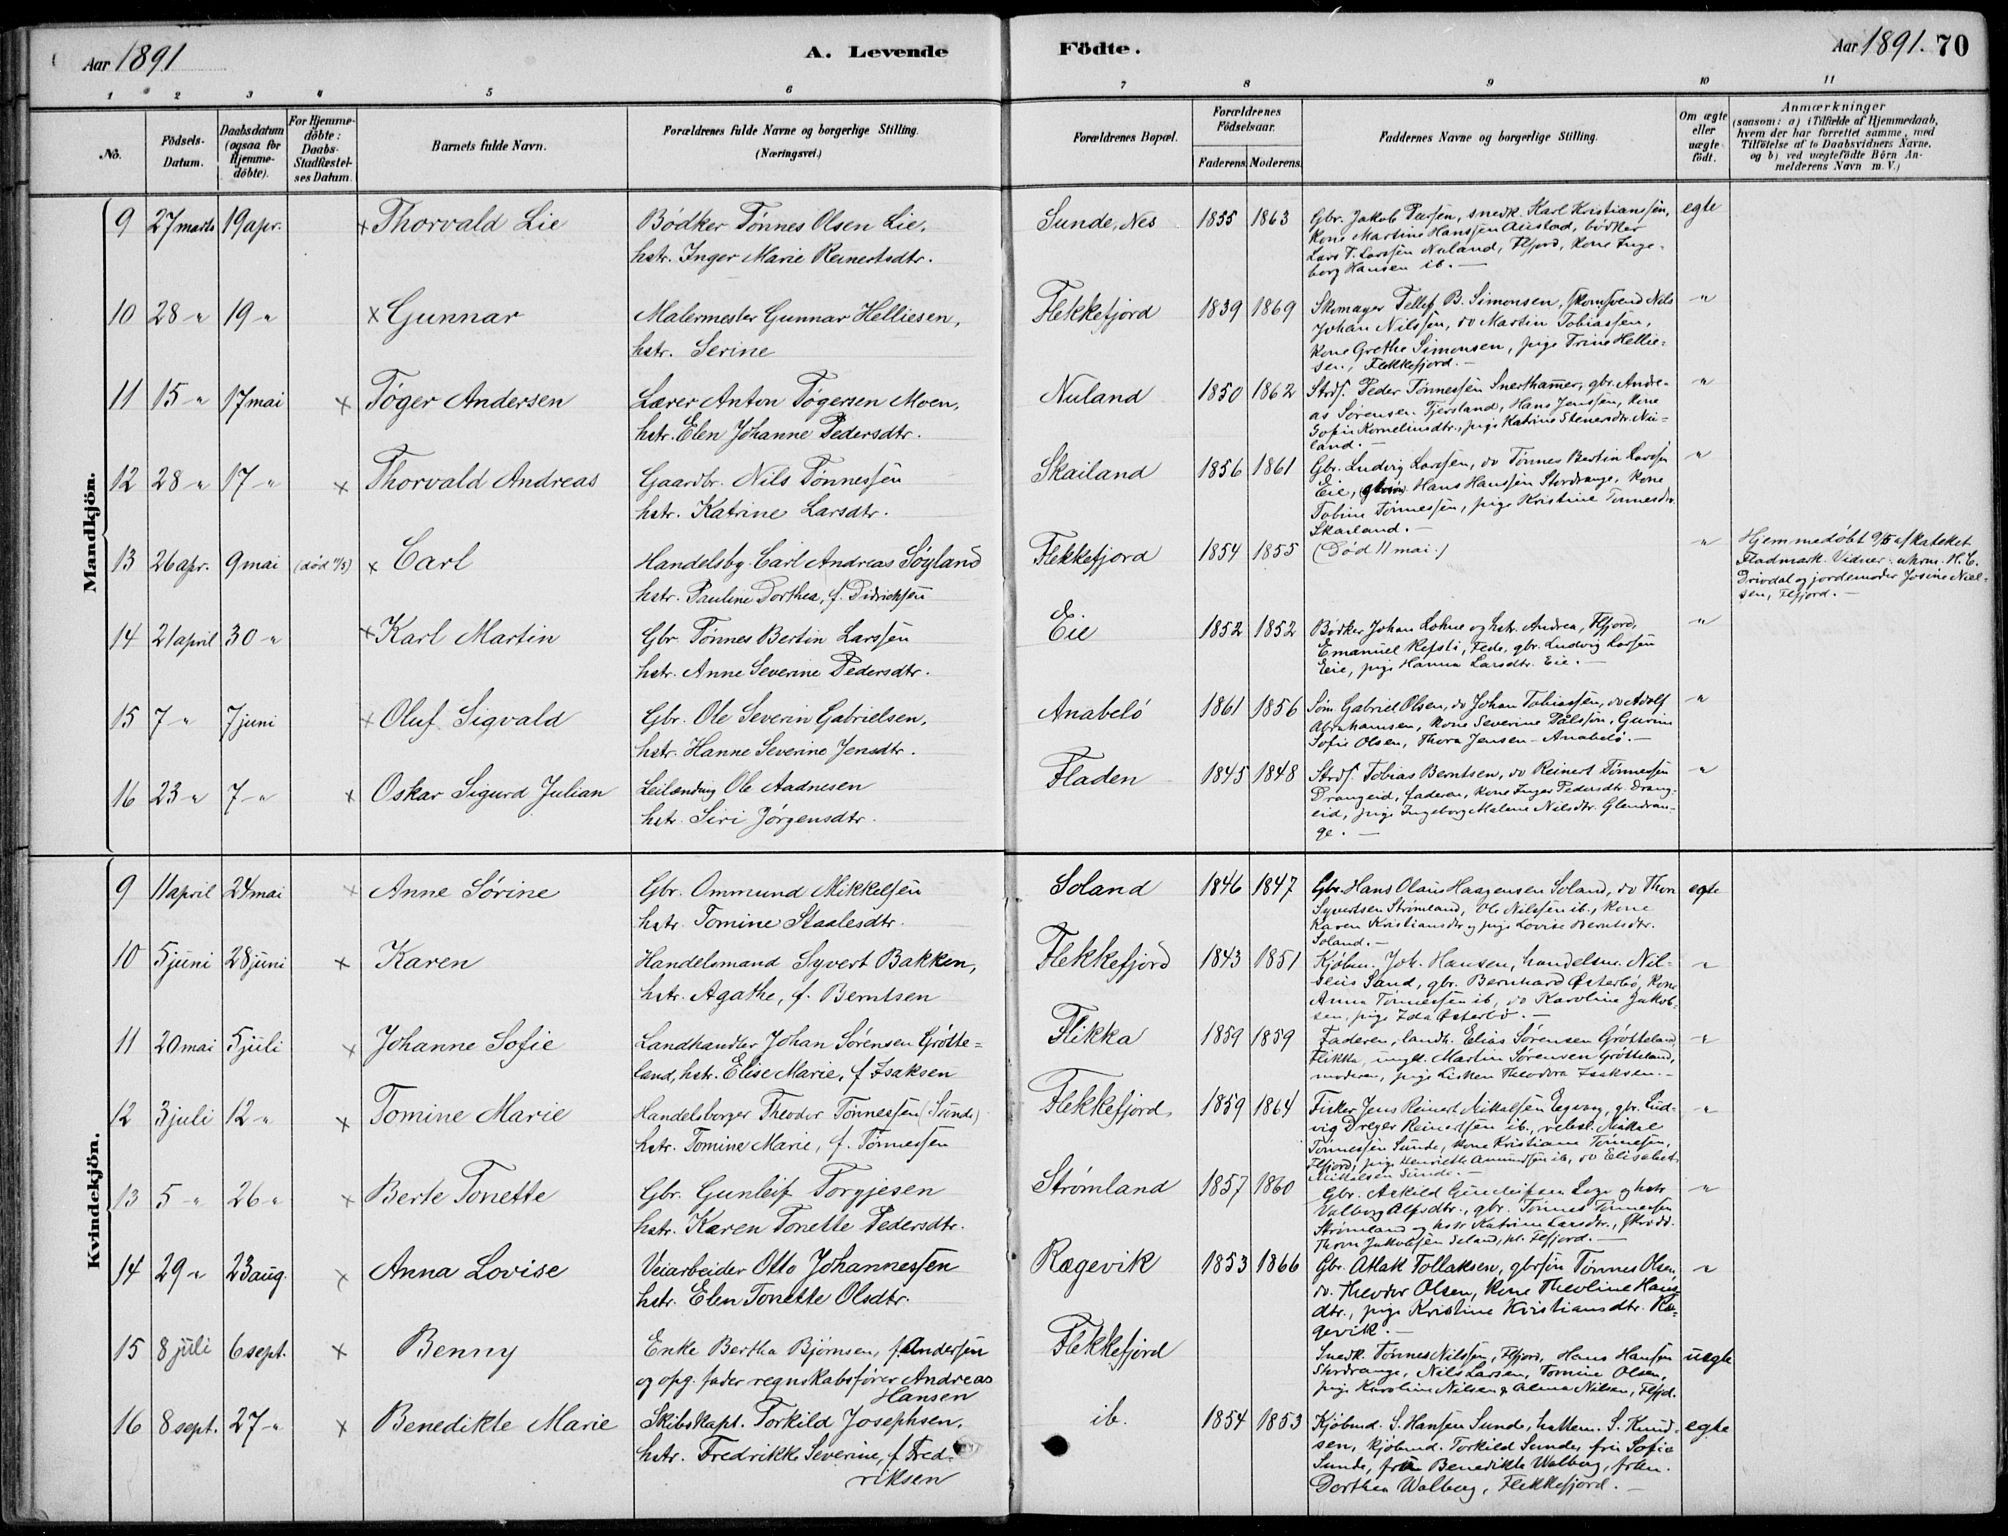 Aar 1891
A. Levende
Födte.
Aar 1891. 70
1 2 3 4 5 6 7 8 9 10 11
No.
Födsels-
Datum.
Daabsdatum
(ogsaa for
Hjemme-
döbte).
For Hjemme-
döbte:
Daabs-
Stadfæstel-
ses Datum.
Barnets fulde Navn.
Forældrenes fulde Navne og borgerlige Stilling.
(Næringsvei.)
Forældrenes Bopæl.
Forældrenes
Födselsaar.
Faderens. Moderens.
Faddernes Navne og borgerlige Stilling.
Om ægte
eller
uægte
födt.
Anmærkninger
(saasom: a) i Tilfælde af Hjemmedaab,
hvem der har forrettet samme, med
Tilföielse af to Daabsvidners Navne,
og b) ved uægtefödte Börn An-
melderens Navn m. V.)
Mandkjön.
9 27 marts 19 apr. × Thorvald Lie Bødker Tønnes Olsen Lie, Sunde, Nes 1855 1863 egte
hstr. Inger Marie Reinertsdtr.
Gbr. Jakob Persen, snedk. Karl Kristianssen,
kone Martine Hanssen Austad, bødker
Lars T. Larssen Nuland, Flfjord, kone Inge-
borg Hansen ib. —
10 28 " 19 " × Gunnar Malermester Gunnar Helliesen, Flekkefjord 1839 1869 "
hstr. Serine
Skomager Tellef B. Simonsen, skomsvend Nils
Johan Nilssen, do Martin Tobiassen,
kone Grethe Simonsen, pige Trine Hellie-
sen, Flekkefjord. —
11 15 " 17 mai × Tøger Andersen Lærer Anton Tøgersen Moen, Nuland 1850 1862 "
hstr. Elen Johanne Pedersdtr.
Strds. Peder Tønnessen Snerthammer, gbr. Andre-
as Sørensen Tjersland, Hans Jenssen, kone
Sofie Korneliusdtr., pige Katrine Stenersdtr. Nu-
land. —
12 28 " 17 " × Thorvald Andreas Gaardbr. Nils Tønnessen Skailand 1856 1861 "
hstr. Katrine Larsdtr.
Gbr. Ludvig Larssen, do Tønnes Bertin Larssen
Eie, Hans Hanssen Stordrange, kone
Tobine Tønnessen, pige Kristine Tønnesdtr.
Skailand. —
13 26 apr. 9 mai (død 11/5) × Carl Handelsbg. Carl Andreas Søyland Flekkefjord 1854 1855 (Død 11 mai.) "
hstr. Pauline Dorthea, f. Didrichsen
Hjemmedøbt 9/5 af kateket
Fladmark. Vidner: uhrm. H. C.
Drivdal og jordemoder Josine Niel-
sen, Flfjord. —
14 21 april 30 " × Karl Martin Gbr Tønnes Bertin Larssen Eie 1852 1852 "
hstr. Anne Severine Pedersdtr.
Bødker Johan Lohne og hstr. Andrea, Flfjord,
Emanuel Refsti, Feda, gbr. Ludvig Larssen
Eie, pige Hanna Larsdtr. Eie. —
15 7 " 7 juni × Oluf Sigvald Gbr. Ole Severin Gabrielsen, Anabelø 1861 1856 "
hstr. Hanne Severine Jensdtr.
Søm Gabriel Olsen, do Johan Tobiassen, do Adolf
Abrahamsen, kone Severine Pålsson, Gurine
Sofie Olsen, Thora Jensen - Anabelø. —
16 23 " 7 " × Oskar Sigurd Julian Leilænding Ole Aadnesen Fladen 1845 1848 "
hstr. Siri Jørgensdtr.
Strds. Tobias Berntsen, do Reinert Tønnessen
Drangeid, faderen, kone Inger Pedersdtr. Drang-
eid, pige Ingeborg Malene Nilsdtr. Glendran-
ge. —
Kvindekjön.
9 11 april 24 mai × Anne Sørine Gbr. Ommund Mikkelsen Soland 1846 1847 egte
hstr. Tomine Staalesdtr.
Gbr. Hans Olaus Haagensen Soland, do Thor
Syvertsen Strømland, Ole Nilssen ib., kone
Karen Kristiansdtr og pige Lovise Berntsdtr.
Soland. —
10 5 juni 28 juni × Karen Handelsmand Syvert Bakken, Flekkefjord 1843 1851 "
hstr. Agathe, f. Berntsen
Kjøbm. Joh. Hansen, handelsm. Nil-
seus Sand, gbr. Bernhard Østerbø, kone
Anna Tønnessen ib, do Karoline Jakob-
sen, pige Ida Østerbø. —
11 20 mai 5 juli × Johanne Sofie Landhandler Johan Sørensen Grøtte- Flikka 1859 1859 "
land, hstr. Elise Marie, f. Isaksen
Faderen, landh. Elias Sørensen Grøtteland,
Flikka, ungk. Martin Sørensen Grøtteland,
moderen, pige Lisken Theodora Isaksen. —
12 3 juli 12 " × Tomine Marie Handelsborger Theodor Tønnessen (Sunde) Flekkefjord 1859 1864 "
hstr. Tomine Marie, f. Tønnessen
Fisker Jens Reinert Mikalsen Egvaag, gbr. Lud-
vig Dreyer Reinertsen ib., Mikal
Tønnessen Sunde, kone Kristiane Tønnessen,
Flfjord, pige Henriette Amundsen ib, do Elisabet
Mikkelsen Sunde. —
13 5 " 26 " × Berte Tonette Gbr. Gunleif Torgjesen Strømland 1857 1860 "
hstr. Karen Tonette Pedersdtr.
Gbr. Askild Gunleifsen Lozo og hstr
Valborg Alfsdtr., gbr. Tønnes Tønnessen
Strømland og hstr Katrine Larsdtr.,
Thom Jakobsen Seland, pl. Flfjord. —
14 29 " 23 aug. × Anna Lovise Veiarbeider Otto Johannessen Rægevik 1853 1866 "
hstr. Elen Tonette Olsdtr.
Gbr. Atlak Tollaksen, gbrsøn Tønnes Olsen,
do. Theodor Olsen, kone Theoline Hans-
dtr., pige Kristine Kristiansdtr. Ræ-
gevik. —
15 8 juli 6 sept. × Benny Enke Bertha Bjørnsen, f. Andersen Flekkefjord uegte
og opg. fader regnskabsfører Andreas
Hansen
Snedk. Tønnes Nilssen, Flfjord, Hans Hansen
Stordrange, Nils Larsen, Tomine Olsen,
pige Karoline Nilsen & Alma Nilsen, Flfjd.
16 8 sept. 27 " × Benedikte Marie Skibskapt. Torkild Josephsen, ib. 1854 1853 egte
hstr. Fredrikke Severine, f. Fred-
riksen
Kjøbmd. S. Hansen Sunde, hattem. S. Knud-
sen, kjøbmd. Torkild Sunde, fru Sofie
Sunde, frøken Benedikte Walberg, frøken.
Dorthea Walberg, Flekkefjord. —